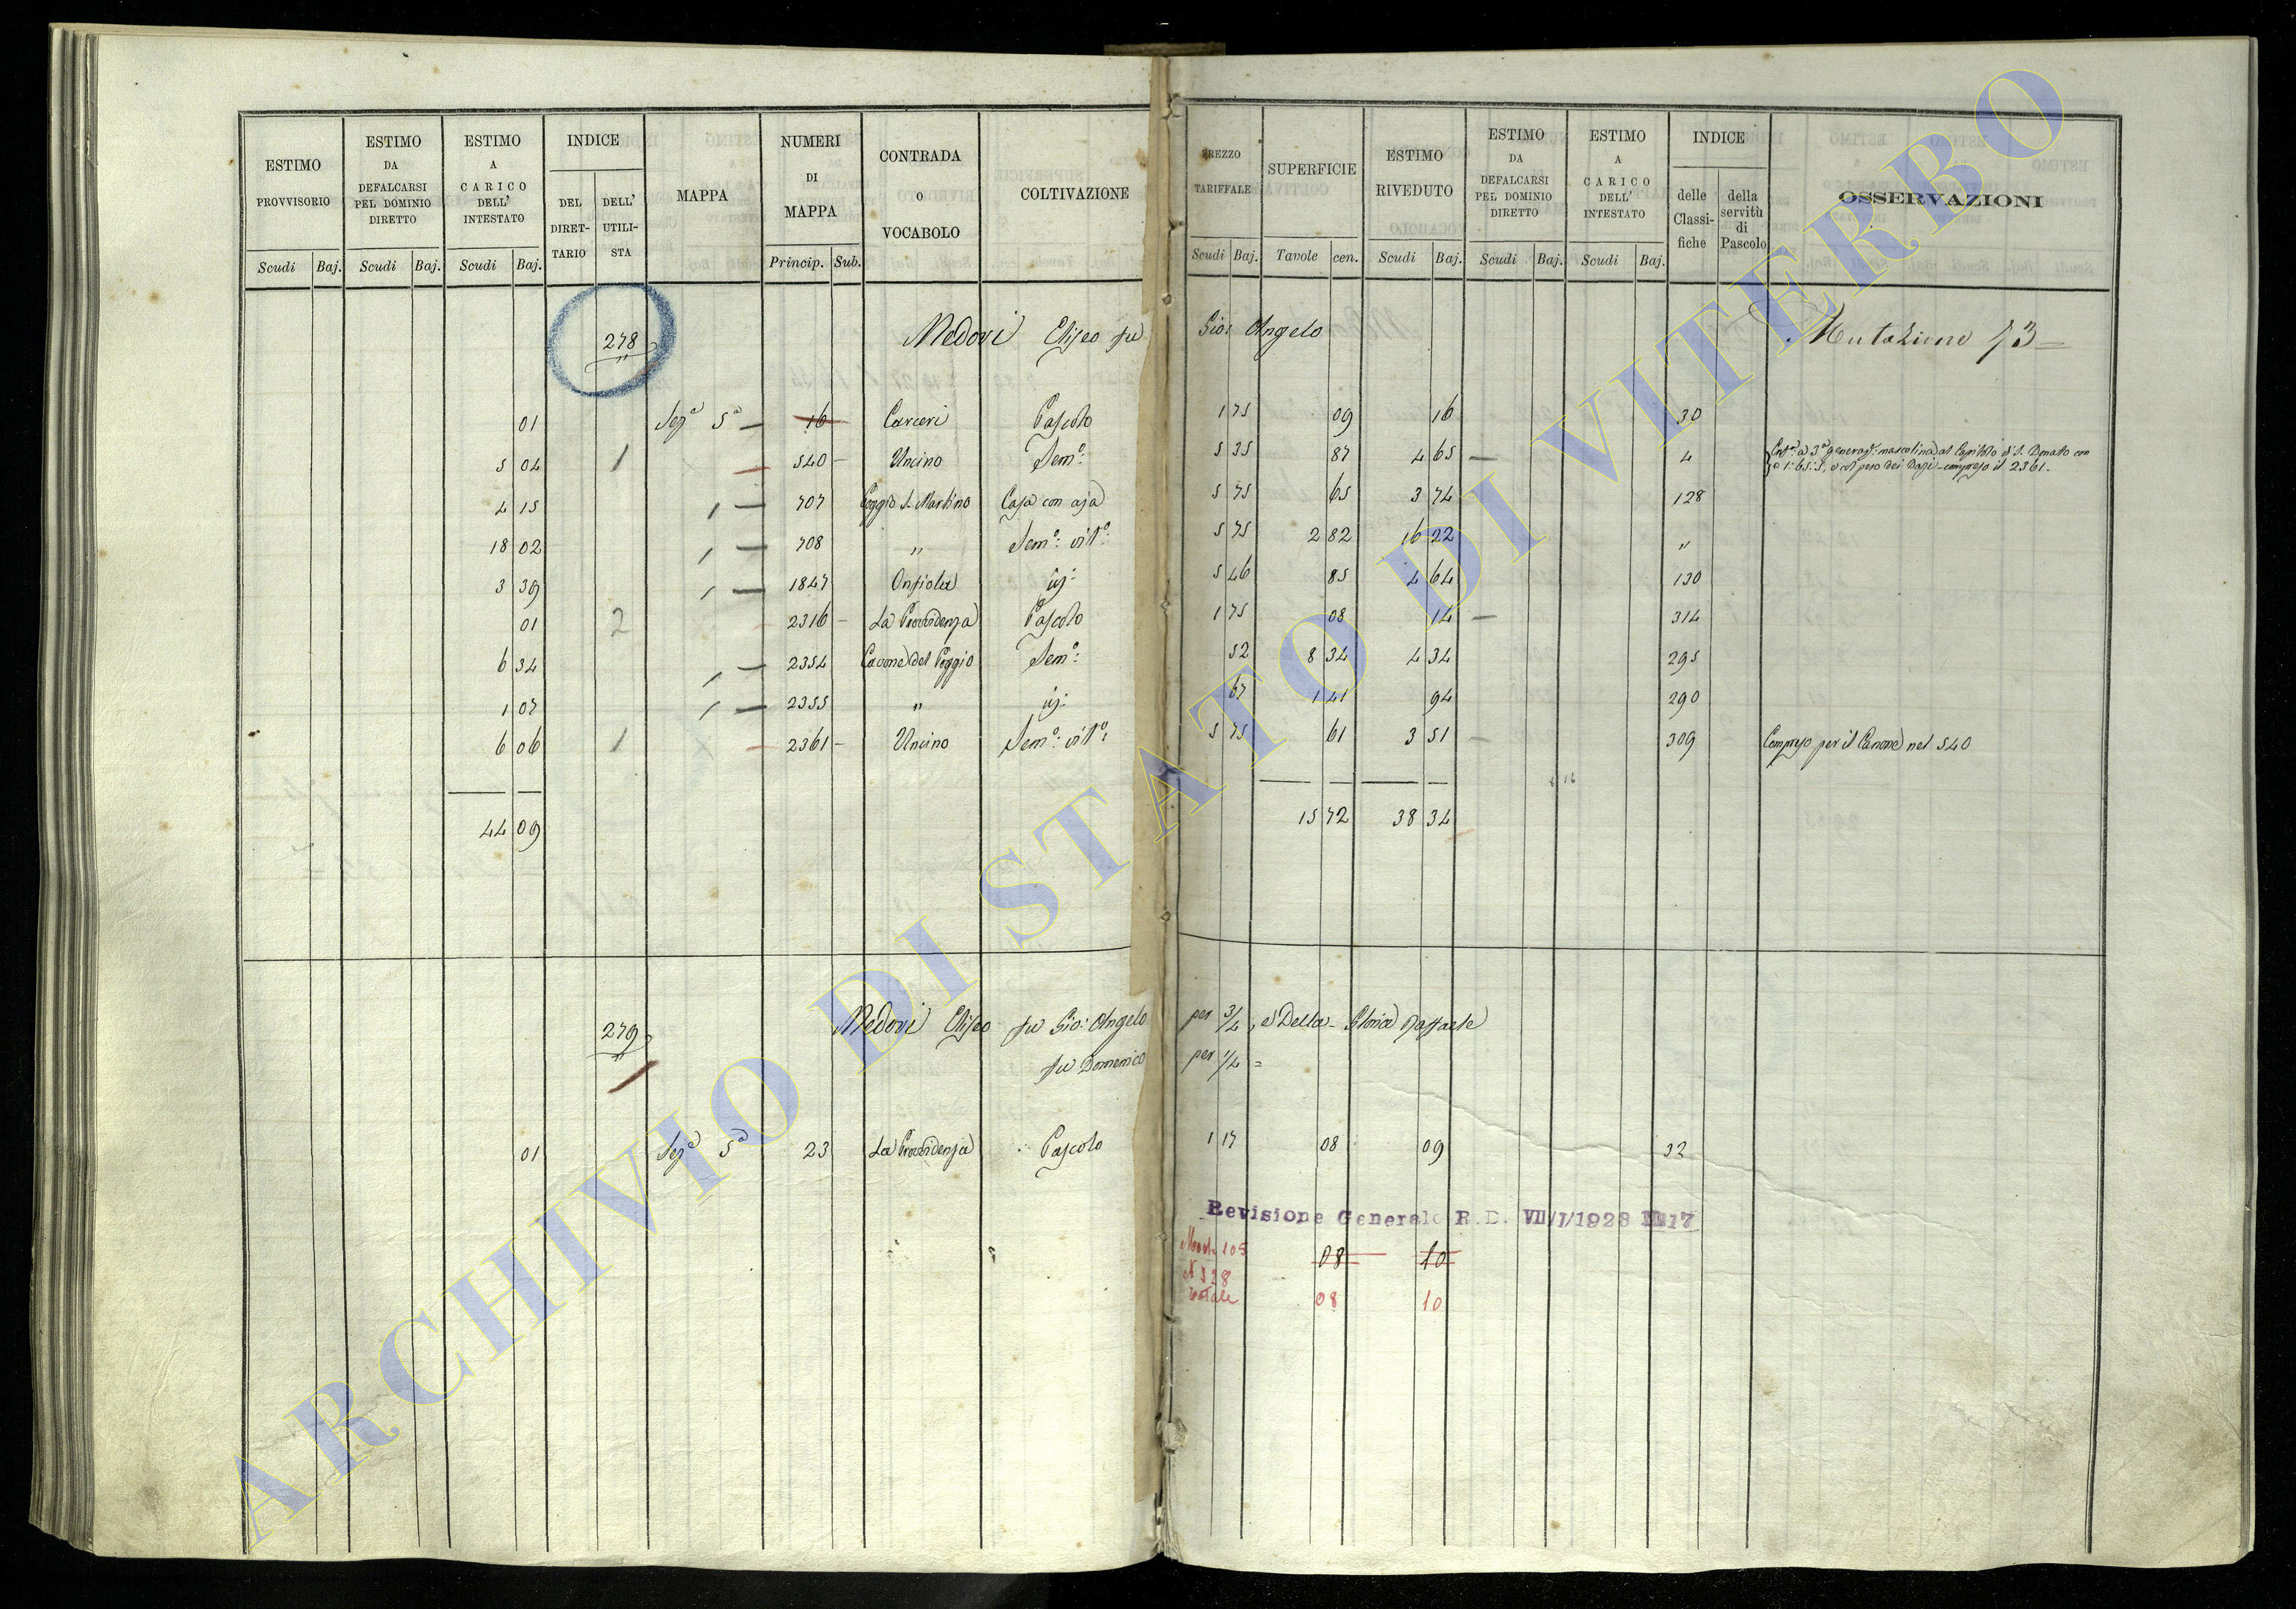 ESTIMO PROVVISORIO Scudi Baj.
ESTIMO DA DEFALCARSI PEL DOMINIO DIRETTO Scudi Baj.
ESTIMO A CARICO DELL' INTESTATO Scudi Baj.
INDICE DEL DIRET-TARIO DELL' UTILI-STA
MAPPA
NUMERI DI MAPPA Princip. Sub.
CONTRADA O VOCABOLO
COLTIVAZIONE
PREZZO TARIFFALE Scudi Baj.
SUPERFICIE Tavole cen.
ESTIMO RIVEDUTO Scudi Baj.
ESTIMO DA DEFALCARSI PEL DOMINIO DIRETTO Scudi Baj.
ESTIMO A CARICO DELL' INTESTATO Scudi Baj.
INDICE delle Classi-fiche della servitù di Pascolo
OSSERVAZIONI
278 Medori Eliseo fu Gio: Angelo Mutazione 73
01 Sez.ª 5ª 16 Carceri Pascolo 1 75 09 16 30
5 04 1 540 Uncino Sem.º: 5 35 87 4 65 4
Ent.ª a 3ª generaz.e mascolina al Capitolo di S. Donato con
1:65:5, e col peso dei Dazi compreso il 2361.
4 15 707 Poggio S. Martino Casa con aja 5 75 65 3 74 128
18 02 708 " Sem.º: vit.º: 5 75 2 82 16 22 "
3 39 1847 Onsiola id: 5 46 85 4 64 130
01 2 2316 La Providenza Pascolo 1 75 08 14 314
6 34 2354 Cavone del Poggio Sem.º: 52 8 34 4 34 295
1 07 2355 " id: 67 1 41 94 290
6 06 1 2361 Uncino Sem.º: vit.º: 5 75 61 3 51 309 Compreso per il Canone nel 540
44 09 15 72 38 34
279 Medori Eliseo fu Gio: Angelo per 3/4, e Della Storia Raffaele
fu Domenico per 1/4 =
01 Sez.ª 5ª 23 La Providenza Pascolo 1 17 08 09 32
Revisione Generale R.D. VII/I/1923 N. 17
08 10
N 328
Totale 08 10
ARCHIVIO DI STATO DI VITERBO